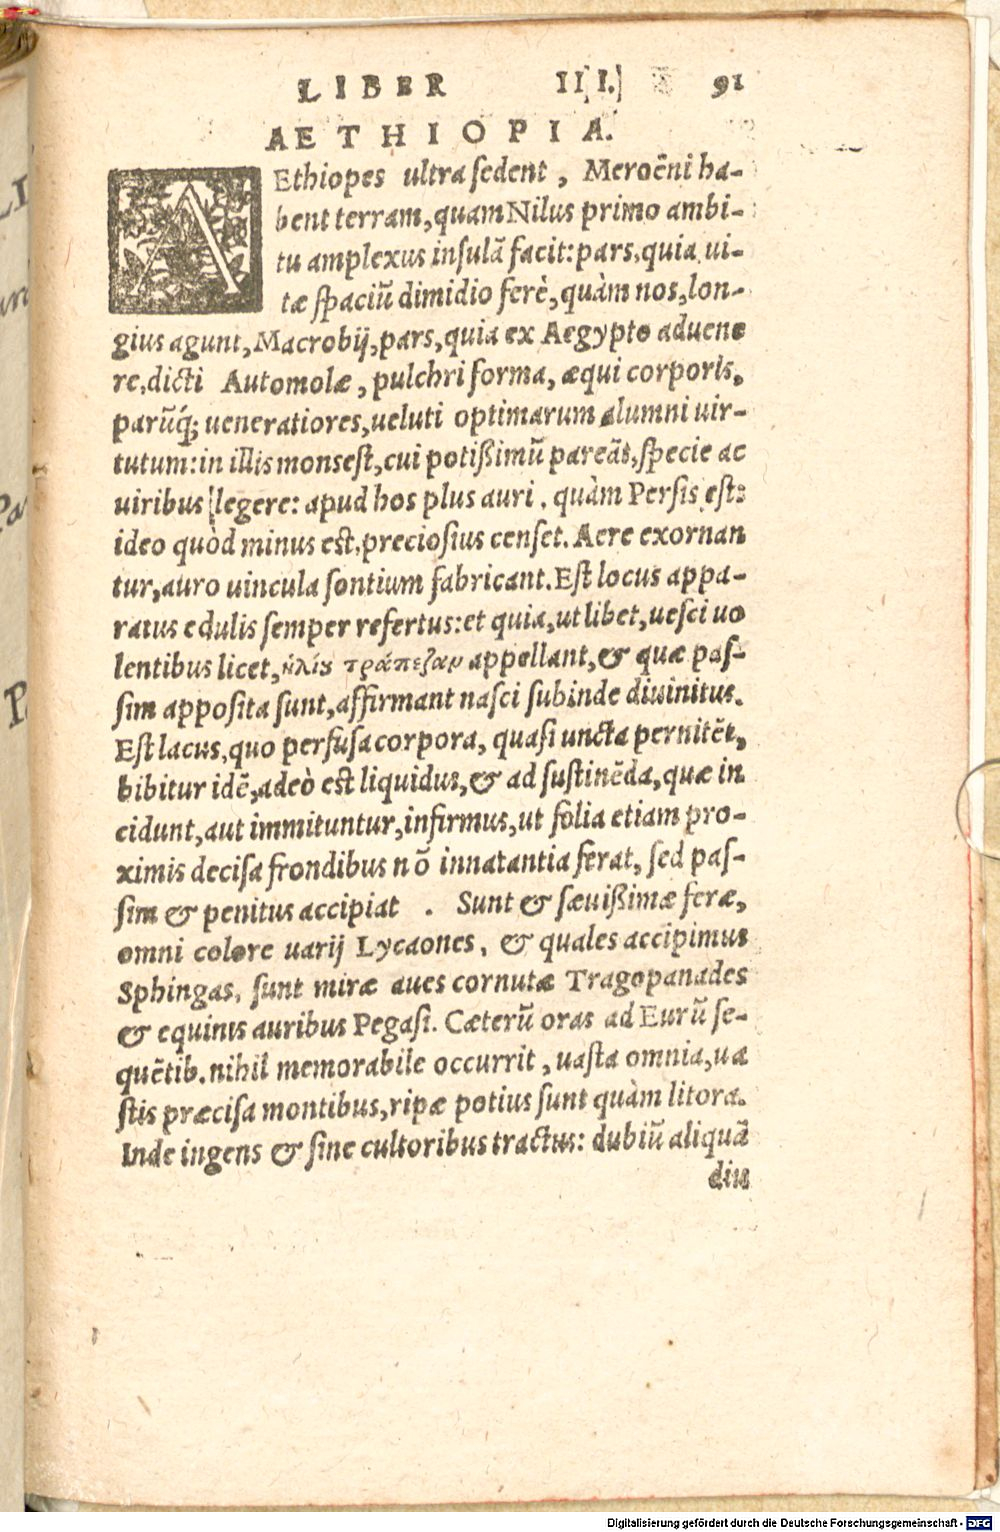 LIBER III. 91
AETHIOPIA.
AEthiopes ultra sedent, Meroëni ha-
bent terram, quam Nilus primo ambi-
tu amplexus insulā facit: pars, quia ui-
tæ spaciū dimidio ferè, quàm nos, lon-
gius agunt, Macrobij, pars, quia ex Aegypto aduene
re, dicti Automolæ, pulchri forma, æqui corporis,
parūq́; ueneratiores, ueluti optimarum alumni uir-
tutum: in illis mons est, cui potißimū pareāt, specie ac
uiribus legere: apud hos plus auri, quàm Persis est:
ideo quòd minus est, preciosius censet. Aere exornan
tur, auro uincula sontium fabricant. Est locus appa-
ratus edulis semper refertus: et quia, ut libet, uesci uo
lentibus licet, ἡλίου τράπεζαν appellant, & quæ pas-
sim apposita sunt, affirmant nasci subinde diuinitus.
Est lacus, quo perfusa corpora, quasi uncta pernitēt,
bibitur idē, adeò est liquidus, & ad sustinēda, quæ in
cidunt, aut immituntur, infirmus, ut folia etiam pro-
ximis decisa frondibus nō innatantia ferat, sed pas-
sim & penitus accipiat. Sunt & sæuißimæ feræ,
omni colore uarij Lycaones, & quales accipimus
Sphingas, sunt miræ aues cornutæ Tragopanades
& equinis auribus Pegasi. Cæterū oras ad Eurū se-
quētib. nihil memorabile occurrit, uasta omnia, ua
stis præcisa montibus, ripæ potius sunt quàm litora.
Inde ingens & sine cultoribus tractus: dubiū aliquā
diu
Digitalisierung gefördert durch die Deutsche Forschungsgemeinschaft - DFG